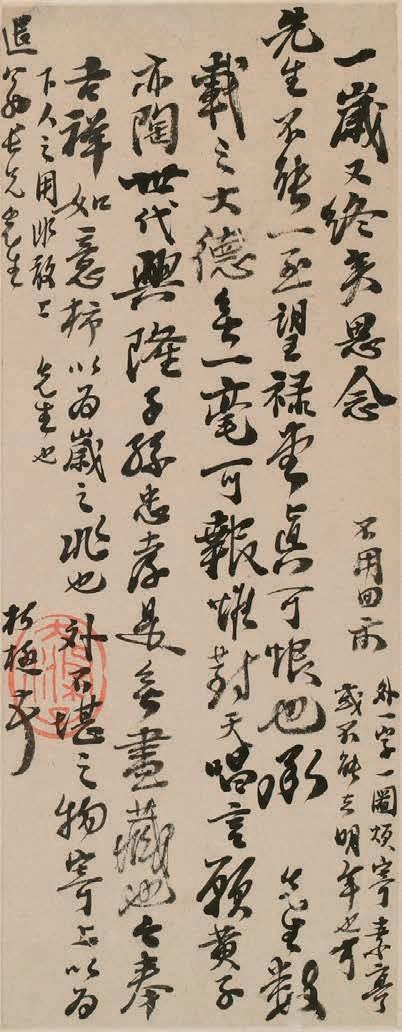 一歲又終矣思念
先生不能一至望祿堂真可恨也承 先生數
載之大德無一毫可報惟對天唱言願黃子
亦陶世代興隆子孫忠孝是無盡藏也今奉
吉祥如意柿以為歲之兆也 外不堪之物寄上以為
下人之用非敢上 先生也
遐翁長兄先生 極
不用回示
外一字一圖煩寄素亭
或不能立明年也可